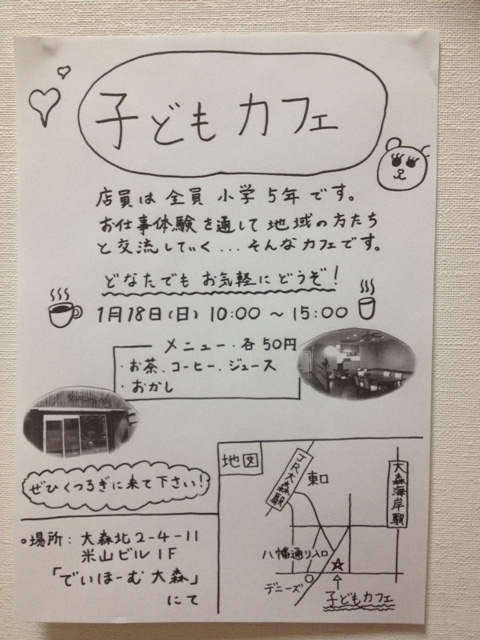 子どもカフェ
店員は全員小学5年です。
お仕事体験を通して地域の方たち
と交流していく...そんなカフェです。
どなたでもお気軽にどうぞ!
1月18日(日) 10:00 〜 15:00
メニュー・各50円
・お茶.コーヒー.ジュース
・おかし
ぜひくつろぎに来て下さい!
○場所: 大森北2-4-11
米山ビル1F
「でいほーむ大森」
にて
地図
JR大森駅
東口
大森海岸駅
八幡通り入口
デニーズ
子どもカフェ